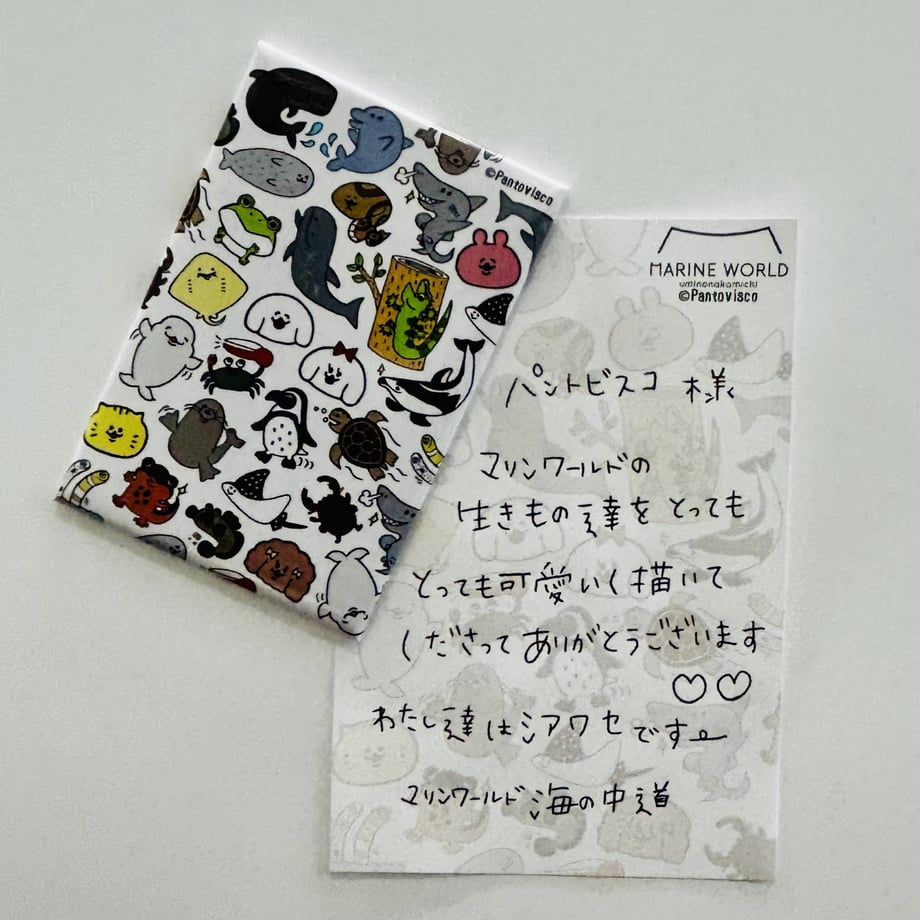 ©Pantovisco
MARINE WORLD
uminonakamichi
©Pantovisco
パントビスコ 様
マリンワールドの
生きもの達を とっても
とっても可愛いく描いて
くださって ありがとうございます
♡♡
わたし達は シアワセです
マリンワールド 海の中道